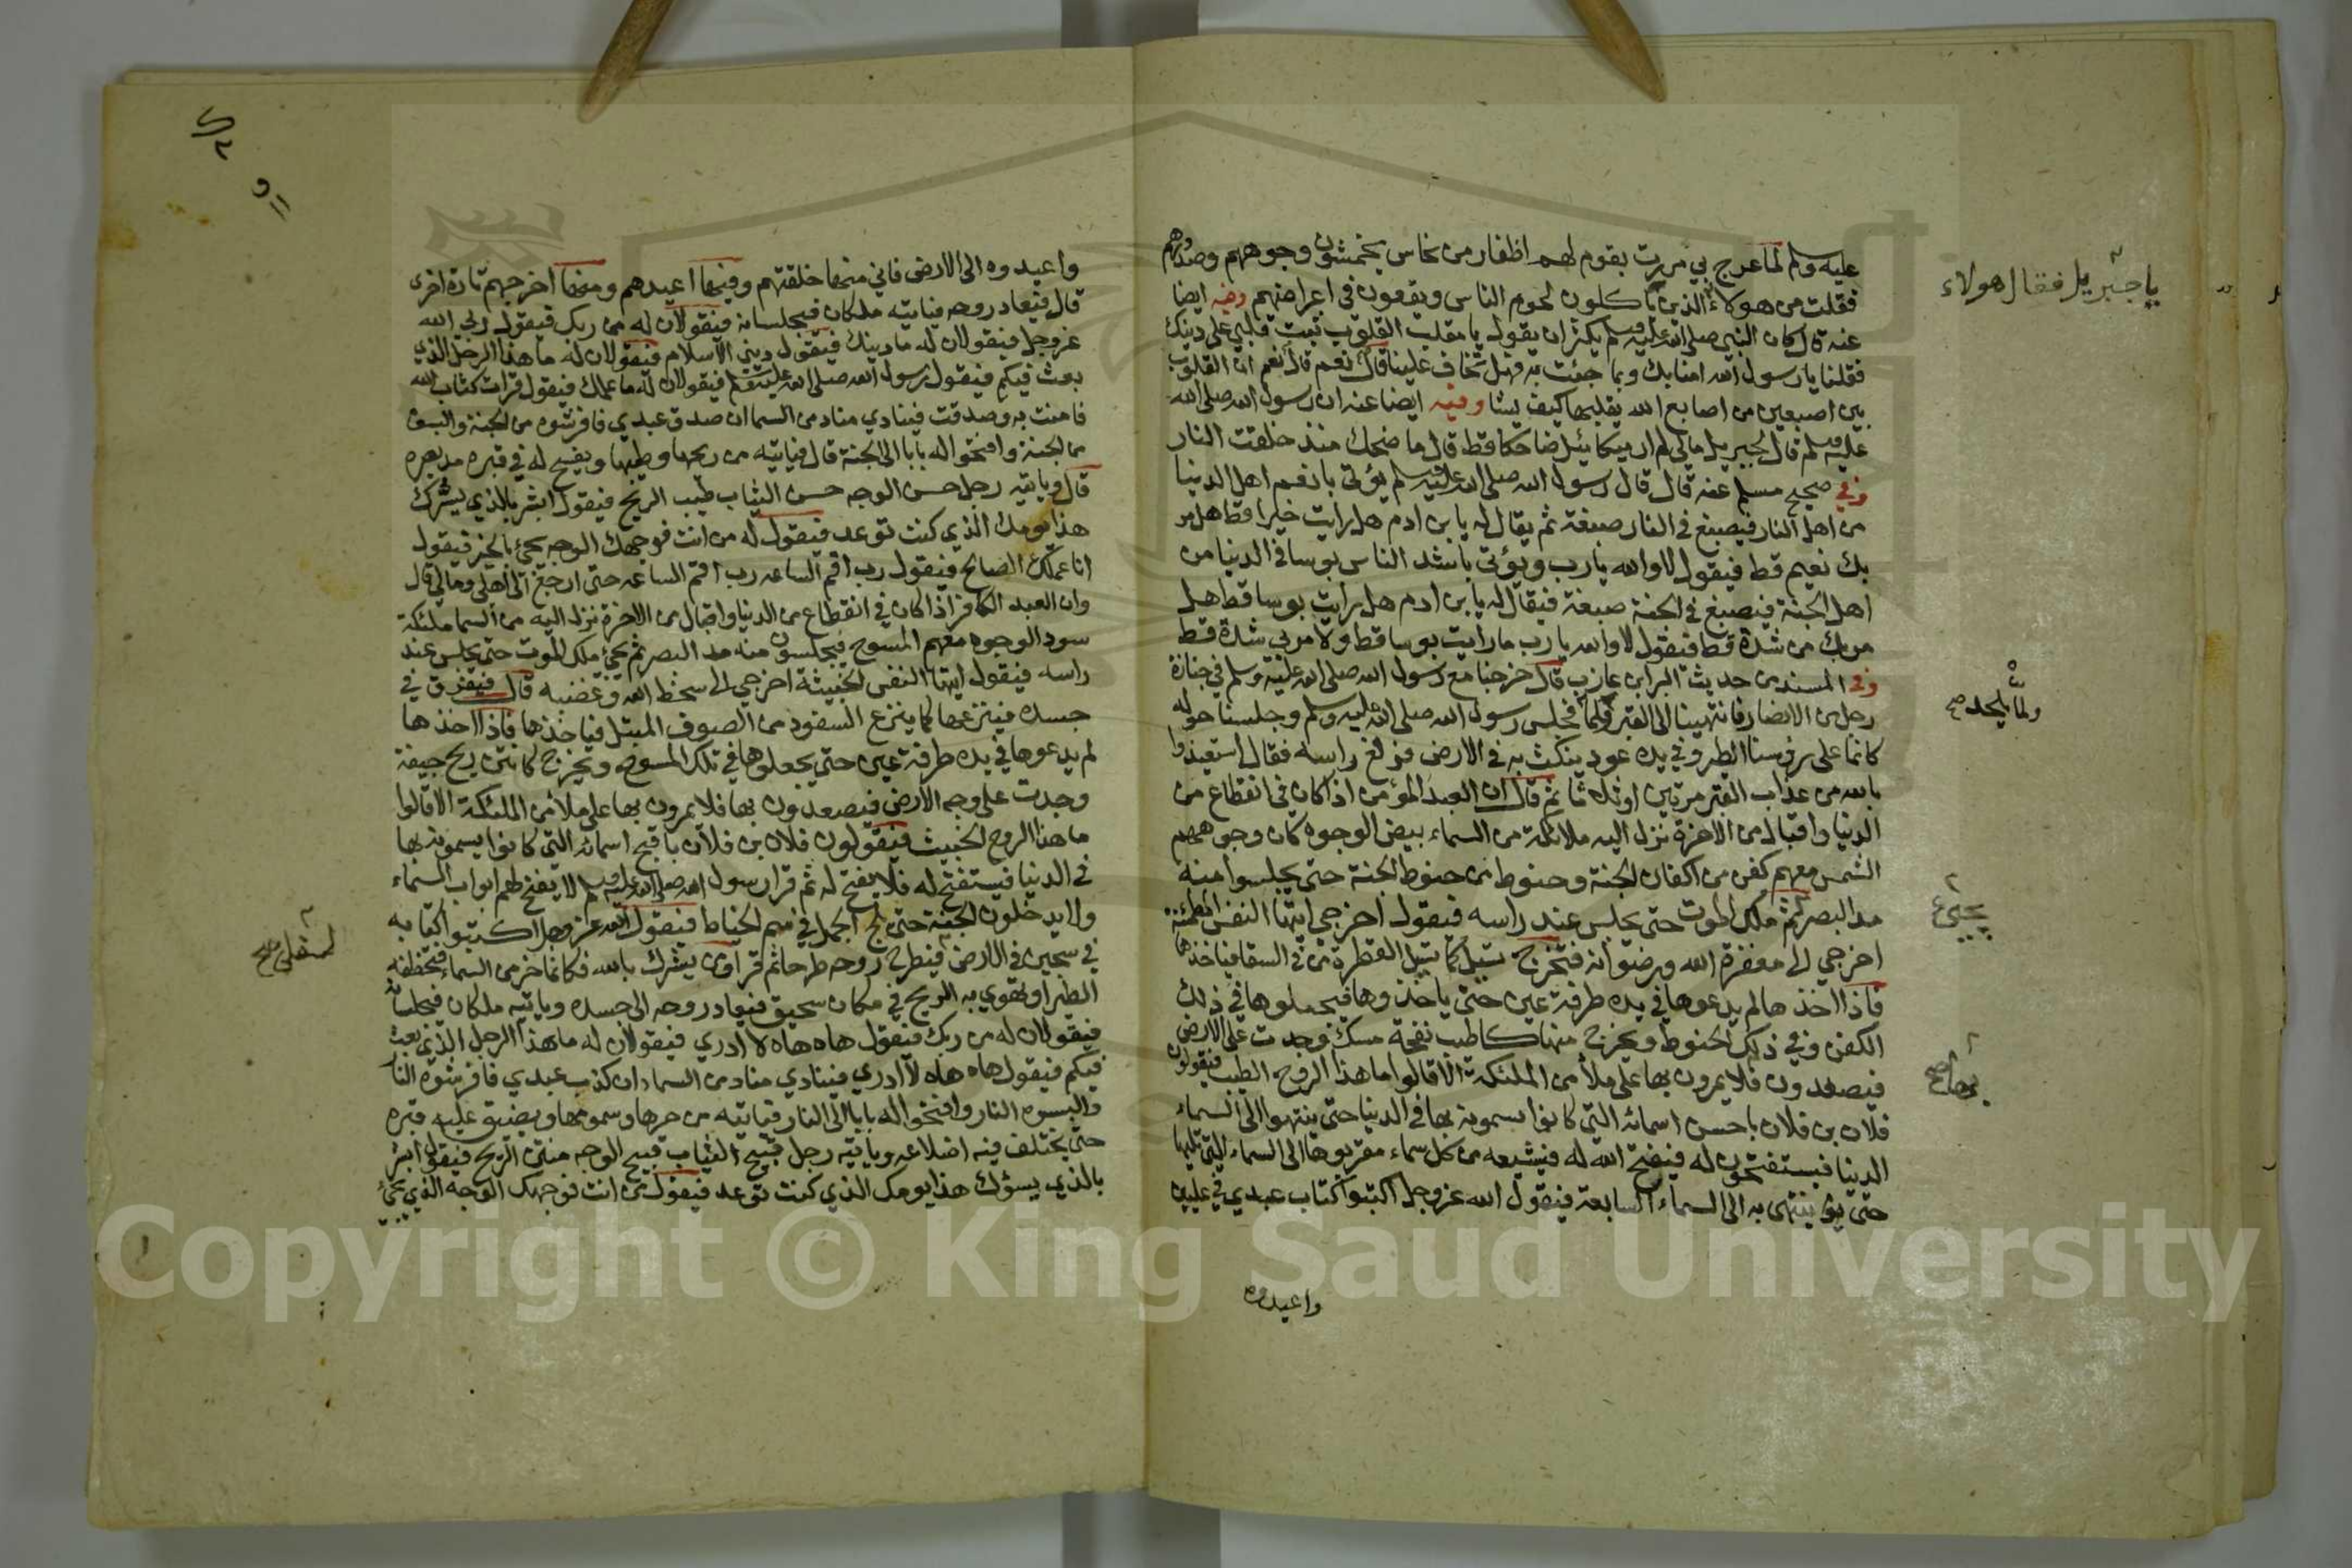 عليه وسلم لما عرج بي مررت بقوم لهم اظفار من نحاس يخمشون وجوههم وصدورهم
فقلت من هولاء الذين ياكلون لحوم الناس ويقعون في اعراضهم وفيه ايضا
يا جبريل فقال هولاء
عنه قال كان النبي صلى الله عليه وسلم يكثر ان يقول يا مقلب القلوب ثبت قلبي على دينك
فقلنا يا رسول الله امنا بك وبما جئت به فهل تخاف علينا قال نعم قال نعم ان القلوب
بين اصبعين من اصابع الله يقلبها كيف يشا وفيه ايضا عنه ان رسول الله صلى الله
عليه وسلم قال لجبريل مالي لم ار ميكائيل ضاحكا قط قال ما ضحك منذ خلقت النار
وفي صحيح مسلم عنه قال قال رسول الله صلى الله عليه وسلم يؤتى بانعم اهل الدنيا
من اهل النار فيصبغ في النار صبغة ثم يقال له يا بن ادم هل رايت خيرا قط هل مر
بك نعيم قط فيقول لا والله يا رب ويؤتى باشد الناس بوسا في الدنيا من
اهل الجنة فيصبغ في الجنة صبغة فيقال له يا بن ادم هل رايت بوسا قط هل
مر بك من شدة قط فيقول لا والله يا رب ما رايت بوسا قط ولا مر بي شدة قط
وفي المسند من حديث البرا بن عازب قال خرجنا مع رسول الله صلى الله عليه وسلم في جنازة
رجل من الانصار فانتهينا الى القبر فجلس رسول الله صلى الله عليه وسلم وجلسنا حوله
ولما يلحد صح
كانما على روسنا الطير وفي يده عود ينكت به في الارض فرفع راسه فقال استعيذوا
بالله من عذاب القبر مرتين او ثلاثا ثم قال ان العبد المؤمن اذا كان في انقطاع من
الدنيا واقبال من الاخرة نزل اليه ملائكة من السماء بيض الوجوه كان وجوههم
الشمس معهم كفن من اكفان الجنة وحنوط من حنوط الجنة حتى يجلسوا منه
مد البصر ثم ملك الموت حتى يجلس عند راسه فيقول اخرجي ايتها النفس المطمئنة
يجيئ
اخرجي الى مغفرة الله ورضوانه فتخرج تسيل كما تسيل القطرة من في السقا فياخذها
فاذا اخذها لم يدعوها في يده طرفة عين حتى ياخذوها فيجعلوها في ذلك
الكفن وفي ذلك الحنوط ويخرج منها كاطيب نفحة مسك وجدت على الارض
فيصعدون فلا يمرون بها على ملأ من الملئكة الا قالوا ما هذا الروح الطيب فيقولون
بها صح
فلان بن فلان باحسن اسمائه التي كانوا يسمونه بها في الدنيا حتى ينتهوا الى السماء
الدنيا فيستفتحون له فيفتح الله له فيشيعه من كل سماء مقربوها الى السماء التي تليها
حتى ينتهى به الى السماء السابعة فيقول الله عز وجل اكتبوا كتاب عبدي في عليين
واعيدوه
واعيدوه الى الارض فاني منها خلقتهم وفيها اعيدهم ومنها اخرجهم تارة اخرى
قال فتعاد روحه فياتيه ملكان فيجلسانه فيقولان له من ربك فيقول ربي الله
عز وجل فيقولان له ما دينك فيقول ديني الاسلام فيقولان له ما هذا الرجل الذي
بعث فيكم فيقول رسول الله صلى الله عليه وسلم فيقولان له ما عملك فيقول قرات كتاب الله
فامنت به وصدقت فينادي مناد من السما ان صدق عبدي فافرشوه من الجنة والبسوه
من الجنة وافتحوا له بابا الى الجنة قال فياتيه من ريحها وطيبها ويفسح له في قبره مد بصره
قال وياتيه رجل حسن الوجه حسن الثياب طيب الريح فيقول ابشر بالذي يسرك
هذا يومك الذي كنت توعد فيقول له من انت فوجهك الوجه يجئ بالخير فيقول
انا عملك الصالح فيقول رب اقم الساعه رب اقم الساعه حتى ارجع الى اهلي ومالي قال
وان العبد الكافر اذا كان في انقطاع من الدنيا واقبال من الاخرة نزل اليه من السما ملئكة
سود الوجوه معهم المسوح فيجلسون منه مد البصر ثم يجئ ملك الموت حتى يجلس عند
راسه فيقول ايتها النفس الخبيثة اخرجي الى سخط الله وغضبه قال فتفرق في
جسده فينتزعها كما ينزع السفود من الصوف المبتل فياخذها فاذا اخذها
لم يدعوها في يده طرفة عين حتى يجعلوها في تلك المسوح ويخرج كانتن ريح جيفة
وجدت على وجه الارض فيصعدون بها فلا يمرون بها على ملأ من الملئكة الا قالوا
ما هذا الروح الخبيث فيقولون فلان بن فلان باقبح اسمائه التي كانوا يسمونه بها
في الدنيا فيستفتح له فلا يفتح له ثم قرا رسول الله صلى الله عليه وسلم لا يفتح لهم ابواب السماء
ولا يدخلون الجنة حتى يلج الجمل في سم الخياط فيقول الله عز وجل اكتبوا كتابه
في سجين في الارض فيطرح روحه طرحا ثم قرا ومن يشرك بالله فكانما خر من السماء فتخطفه
السفلى صح
الطير او تهوي به الريح في مكان سحيق فتعاد روحه الى جسده وياتيه ملكان فيجلسانه
فيقولان له من ربك فيقول هاه هاه لا ادري فيقولان له ما هذا الرجل الذي بعث
فيكم فيقول هاه هاه لا ادري فينادي مناد من السماء ان كذب عبدي فافرشوه النار
والبسوه النار وافتحوا له بابا الى النار فياتيه من حرها وسمومها ويضيق عليه قبره
حتى يختلف فيه اضلاعه وياتيه رجل قبيح الثياب قبيح الوجه منتن الريح فيقول ابشر
بالذي يسؤك هذا يومك الذي كنت توعد فيقول من انت فوجهك الوجه الذي يجئ
Copyright © King Saud University